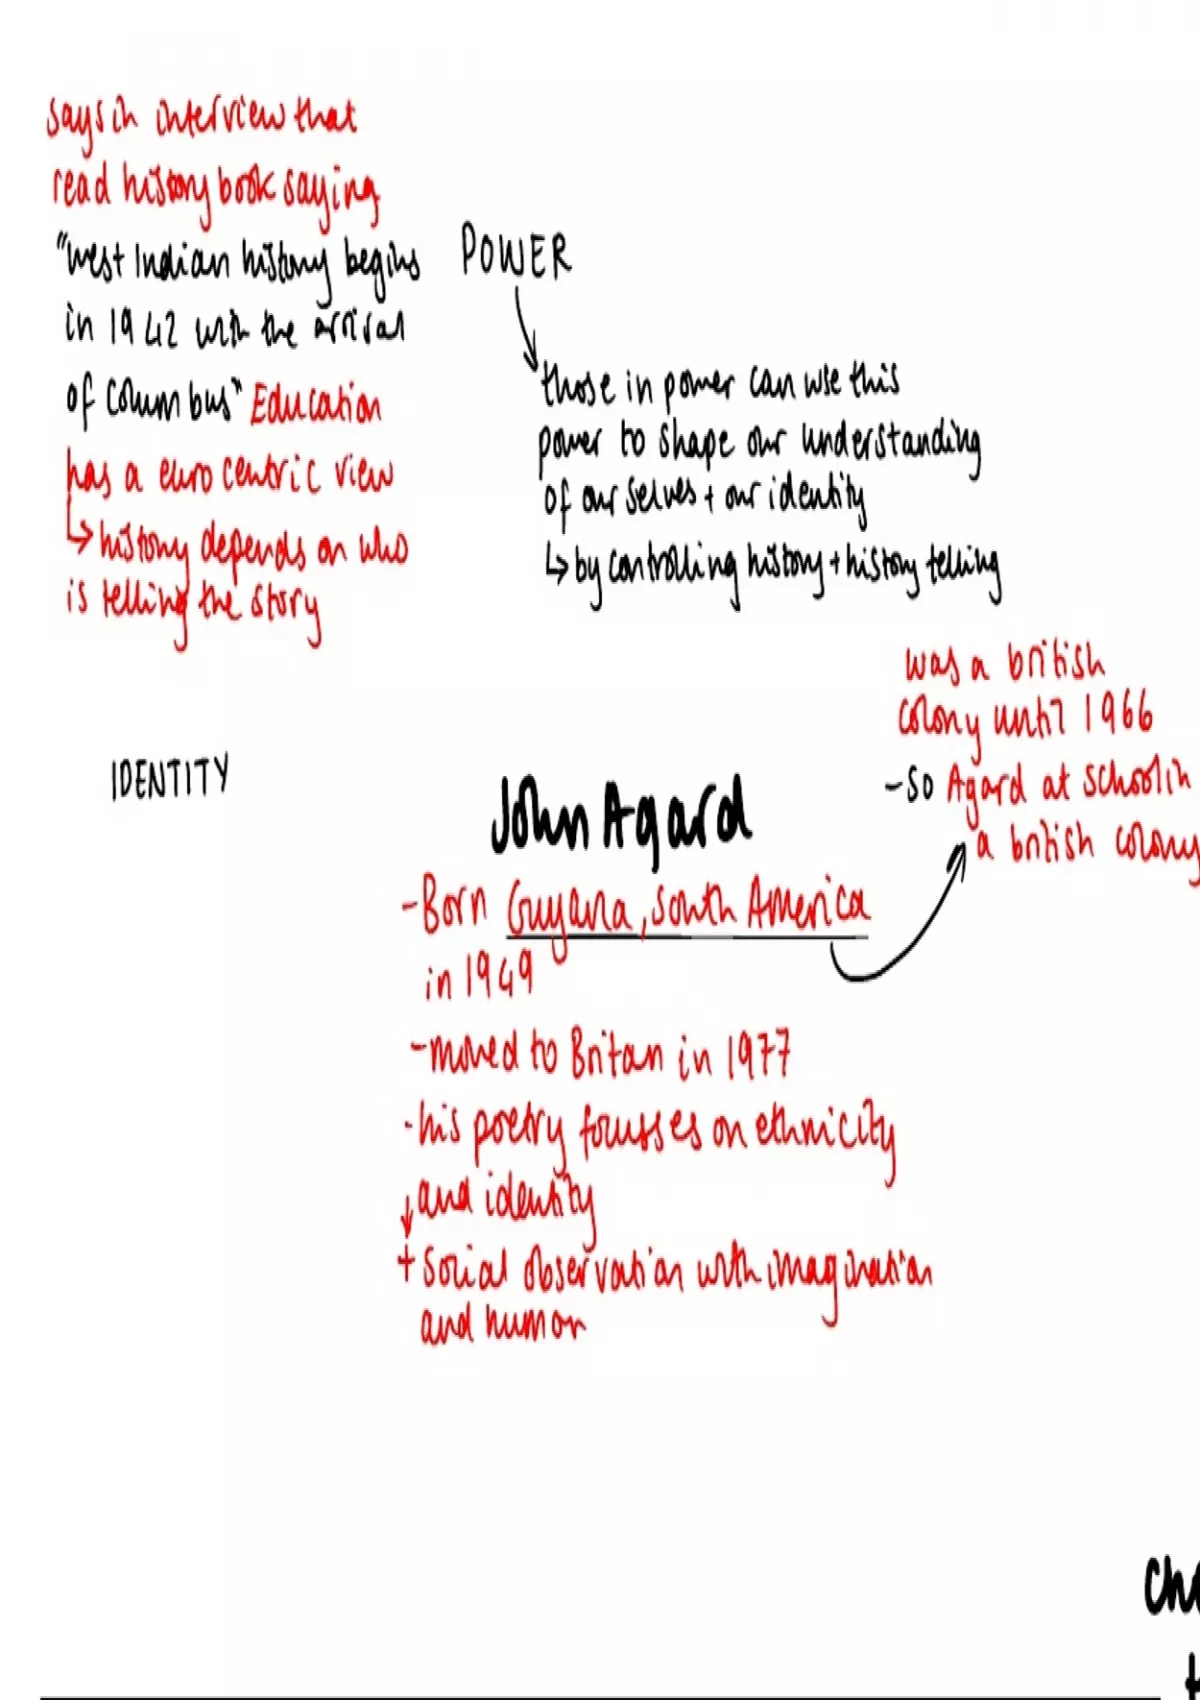 says in interview that
read history book saying
"West Indian history begins
in 1942 with the arrival
of Columbus" Education
has a eurocentric view
↳ history depends on who
is telling the story
POWER
those in power can use this
power to shape our understanding
of ourselves + our identity
↳ by controlling history + history telling
was a british
colony until 1966
- so Agard at school in
a british colony
IDENTITY
John Agard
- Born Guyana, South America
in 1949
- moved to Britan in 1977
- his poetry focusses on ethnicity
and identity
+ social observation with imagination
and humor